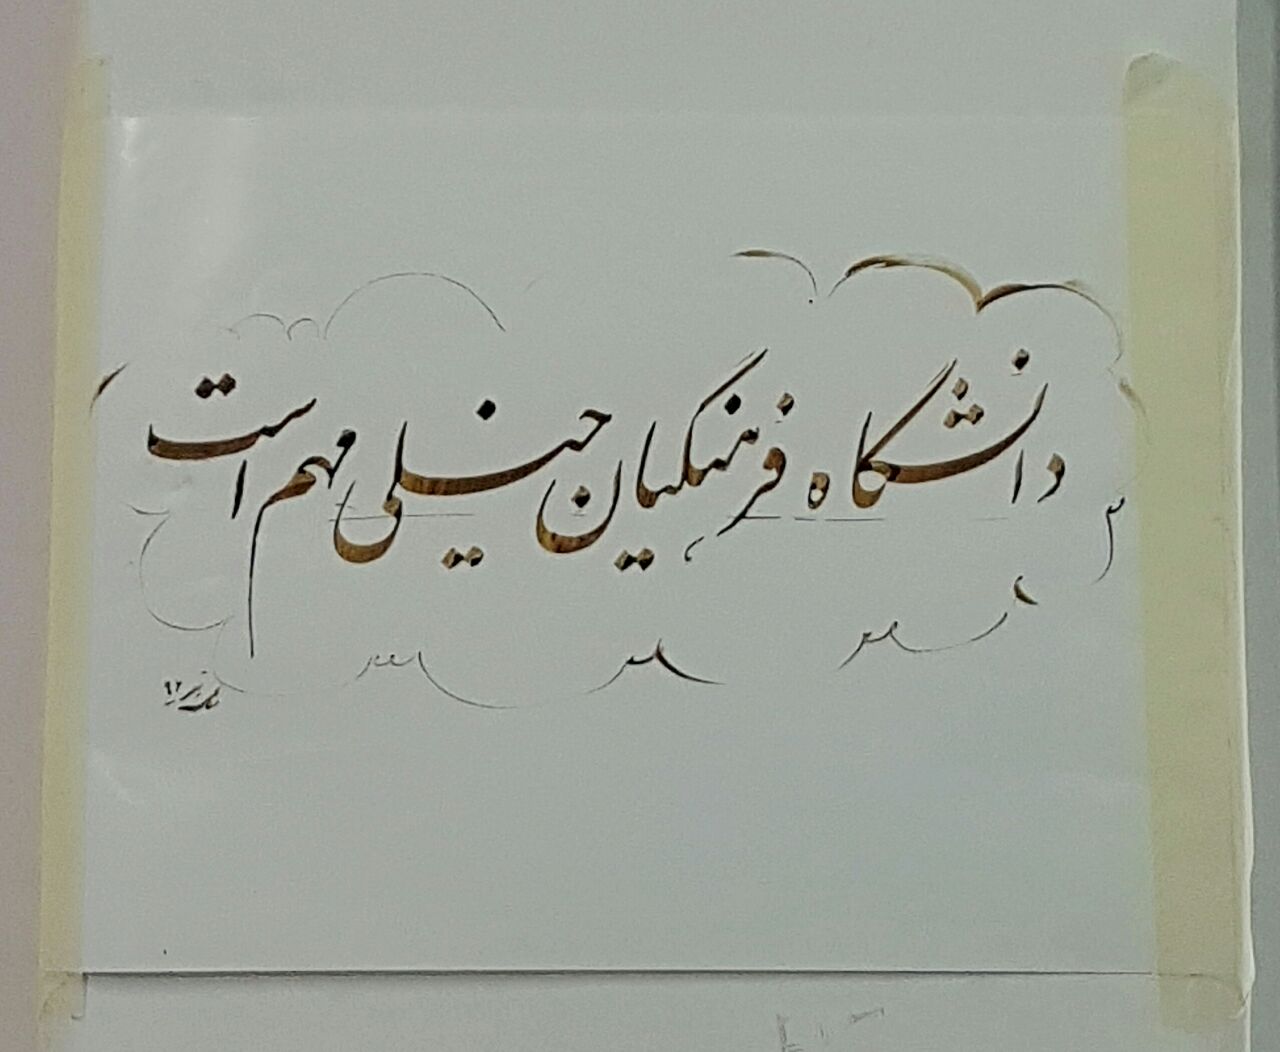 دانشگاه فرهنگیان خیلی مهم است